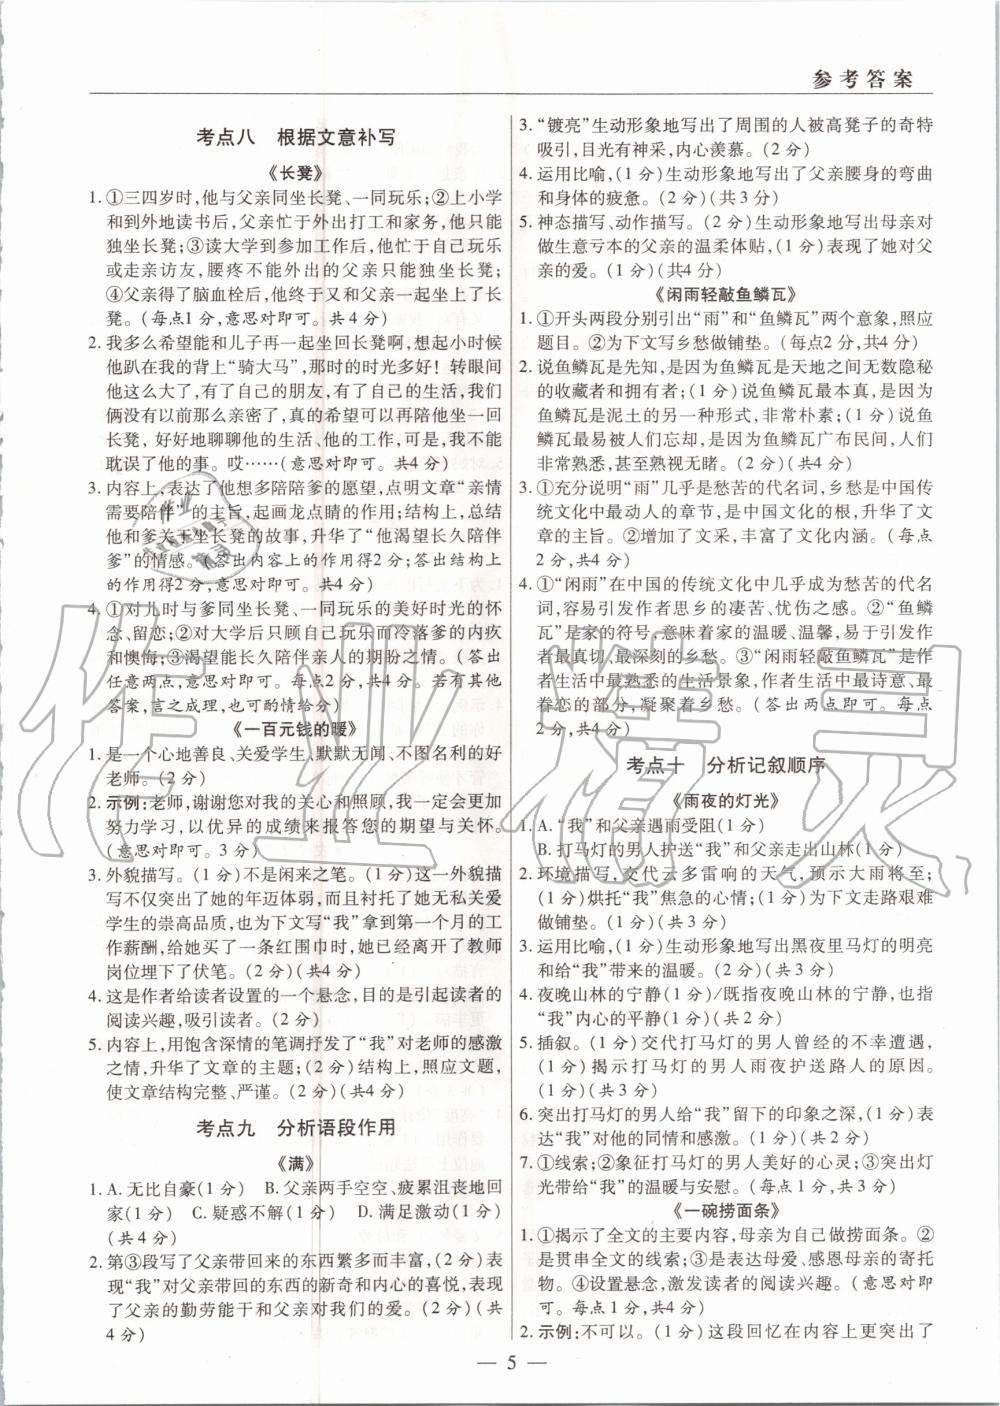 参考答案
考点八 根据文意补写
《长凳》
1. ①三四岁时,他与父亲同坐长凳、一同玩乐;②上小学
和到外地读书后,父亲忙于外出打工和家务,他只能
独坐长凳;③读大学到参加工作后,他忙于自己玩乐
或走亲访友,腰疼不能外出的父亲只能独坐长凳;
④父亲得了脑血栓后,他终于又和父亲一起坐上了长
凳。(每点1分,意思对即可。共4分)
2. 我多么希望能和儿子再一起坐回长凳啊,想起小时候
他趴在我的背上“骑大马”,那时的时光多好!转眼间
他这么大了,有了自己的朋友,有了自己的生活,我们
俩没有以前那么亲密了,真的希望可以再陪他坐一回
长凳,好好地聊聊他的生活、他的工作,可是,我不能
耽误了他的事。哎……(意思对即可。共4分)
3. 内容上,表达了他想多陪陪爹的愿望,点明文章“亲情
需要陪伴”的主旨,起画龙点睛的作用;结构上,总结
他和爹关于坐长凳的故事,升华了“他渴望长久陪伴
爹”的情感。(答出内容上的作用得2分;答出结构上
的作用得2分,意思对即可。共4分)
4. ①对儿时与爹同坐长凳、一同玩乐的美好时光的怀
念、留恋;②对大学后只顾自己玩乐而冷落爹的内疚
和懊悔;③渴望能长久陪伴亲人的期盼之情。(答出
任意两点,意思对即可。每点2分,共4分。若有其他
答案,言之成理,也可酌情给分)
《一百元钱的暖》
1. 是一个心地善良、关爱学生、默默无闻、不图名利的好
老师。(2分)
2. 示例:老师,谢谢您对我的关心和照顾,我一定会更加
努力学习,以优异的成绩来报答您的期望与关怀。
(意思对即可。3分)
3. 外貌描写。(1分)不是闲来之笔。(1分)这一外貌描
写不仅突出了她的年迈体弱,而且衬托了她无私关爱
学生的崇高品质,也为下文写“我”拿到第一个月的工
作薪酬,给她买了一条红围巾时,她已经离开了教师
岗位埋下了伏笔。(2分)(共4分)
4. 这是作者给读者设置的一个悬念,目的是引起读者的
阅读兴趣,吸引读者。(2分)
5. 内容上,用饱含深情的笔调抒发了“我”对老师的感激
之情,升华了文章的主题;(2分)结构上,照应文题,
使文章结构完整、严谨。(2分)(共4分)
考点九 分析语段作用
《满》
1. A. 无比自豪(1分) B. 父亲两手空空、疲累沮丧地回
家(1分) C. 疑惑不解(1分) D. 满足激动(1分)
(共4分)
2. 第③段写了父亲带回来的东西繁多而丰富,(2分)表
现“我”对父亲带回的东西的新奇和内心的喜悦,表现
了父亲的勤劳能干和父亲对我们的爱。(2分)(共
4分)
3. “镀亮”生动形象地写出了周围的人被高凳子的奇特
吸引,目光有神采,内心羡慕。(2分)
4. 运用比喻,(1分)生动形象地写出了父亲腰身的弯曲
和身体的疲惫。(2分)(共3分)
5. 神态描写、动作描写。(2分)生动形象地写出母亲对
做生意亏本的父亲的温柔体贴,(1分)表现了她对父
亲的爱。(1分)(共4分)
《闲雨轻敲鱼鳞瓦》
1. ①开头两段分别引出“雨”和“鱼鳞瓦”两个意象,照应
题目。②为下文写乡愁做铺垫。(每点2分,共4分)
2. 说鱼鳞瓦是先知,是因为鱼鳞瓦是天地之间无数隐秘
的收藏者和拥有者;(1分)说鱼鳞瓦最本真,是因为
鱼鳞瓦是泥土的另一种形式,非常朴素;(1分)说鱼
鳞瓦最易被人们忘却,是因为鱼鳞瓦广布民间,人们
非常熟悉,甚至熟视无睹。(2分)(共4分)
3. ①充分说明“雨”几乎是愁苦的代名词,乡愁是中国传
统文化中最动人的章节,是中国文化的根,升华了文
章的主旨。②增加了文采,丰富了文化内涵。(每点
2分,共4分)
4. ①“闲雨”在中国的传统文化中几乎成为愁苦的代名
词,容易引发作者思乡的凄苦、忧伤之感。②“鱼鳞
瓦”是家的符号,意味着家的温暖、温馨,易于引发作
者最真切、最深刻的乡愁。③“闲雨轻敲鱼鳞瓦”是作
者生活中最熟悉的生活景象,作者生活中最诗意、最
眷恋的部分,凝聚着乡愁。(答出两点即可。每点
2分,共4分)
考点十 分析记叙顺序
《雨夜的灯光》
1. A. “我”和父亲遇雨受阻(1分)
B. 打马灯的男人护送“我”和父亲走出山林(1分)
2. 环境描写,交代云多雷响的天气,预示大雨将至;
(1分)烘托“我”焦急的心情;(1分)为下文走路艰难
做铺垫。(1分)(共3分)
3. 运用比喻,(1分)生动形象地写出黑夜里马灯的明亮
和给“我”带来的温暖。(2分)(共3分)
4. 夜晚山林的宁静(1分)/既指夜晚山林的宁静,也指
“我”内心的平静(1分)(共2分)
5. 插叙。(1分)交代打马灯的男人曾经的不幸遭遇,
(1分)表现打马灯的男人雨夜护送路人的原因。
(1分)(共3分)
6. 突出打马灯的男人给“我”留下的印象之深,(1分)表
达“我”对他的同情和感激。(1分)(共2分)
7. ①线索;②象征打马灯的男人美好的心灵;③突出灯
光带给“我”的温暖与安慰。(每点1分,共3分)
《一碗捞面条》
1. ①揭示了全文的主要内容,母亲为自己做捞面条。②
是贯串全文的线索;③是表达母爱、感恩母亲的寄托
物。④设置悬念,激发读者的阅读兴趣。(意思对即
可。每点1分,共4分)
2. 示例:不可以。(1分)这段回忆在内容上更突出了
— 5 —
作业精灵